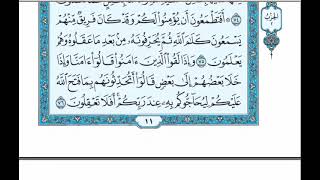 ٧٤ ۞ أَفَتَطْمَعُونَ أَن يُؤْمِنُوا۟ لَكُمْ وَقَدْ كَانَ فَرِيقٌ مِّنْهُمْ
يَسْمَعُونَ كَلَٰمَ ٱللَّهِ ثُمَّ يُحَرِّفُونَهُۥ مِنۢ بَعْدِ مَا عَقَلُوهُ وَهُمْ
يَعْلَمُونَ ٧٥ وَإِذَا لَقُوا۟ ٱلَّذِينَ ءَامَنُوا۟ قَالُوٓا۟ ءَامَنَّا وَإِذَا
خَلَا بَعْضُهُمْ إِلَىٰ بَعْضٍ قَالُوٓا۟ أَتُحَدِّثُونَهُم بِمَا فَتَحَ ٱللَّهُ
عَلَيْكُمْ لِيُحَآجُّوكُم بِهِۦ عِندَ رَبِّكُمْ ۚ أَفَلَا تَعْقِلُونَ ٧٦
١١